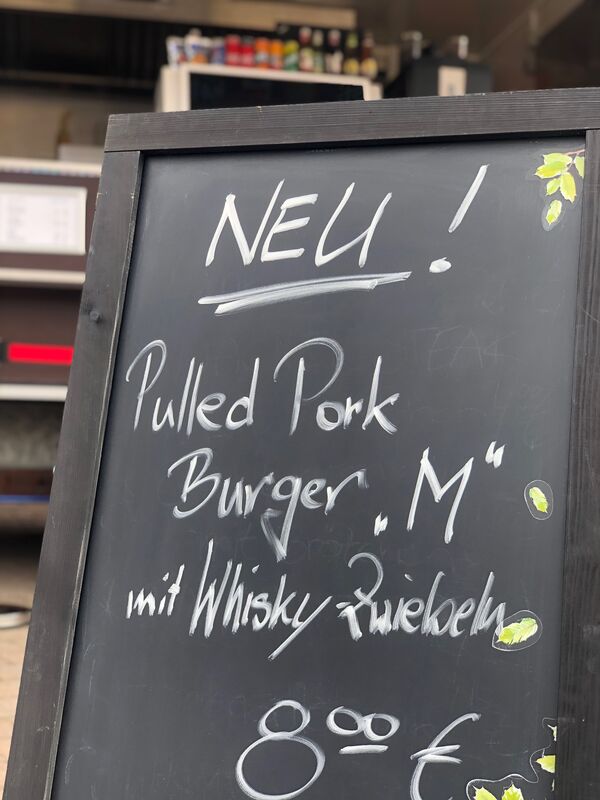 NEU!
Pulled Pork
Burger „M“
mit Whisky-Zwiebeln
8.00 €